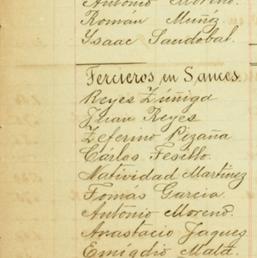 Antonio Moreno.
Román Muñoz
Ysaac Sandobal.
Tercieros en Sances.
Reyes Zúñiga
Juan Reyes
Zeferino Pizaña
Cárlos Tesillo.
Natividad Martínez
Tomás Garcia.
Antonio Moreno.
Anastacio Jaques.
Emigdio Mata.